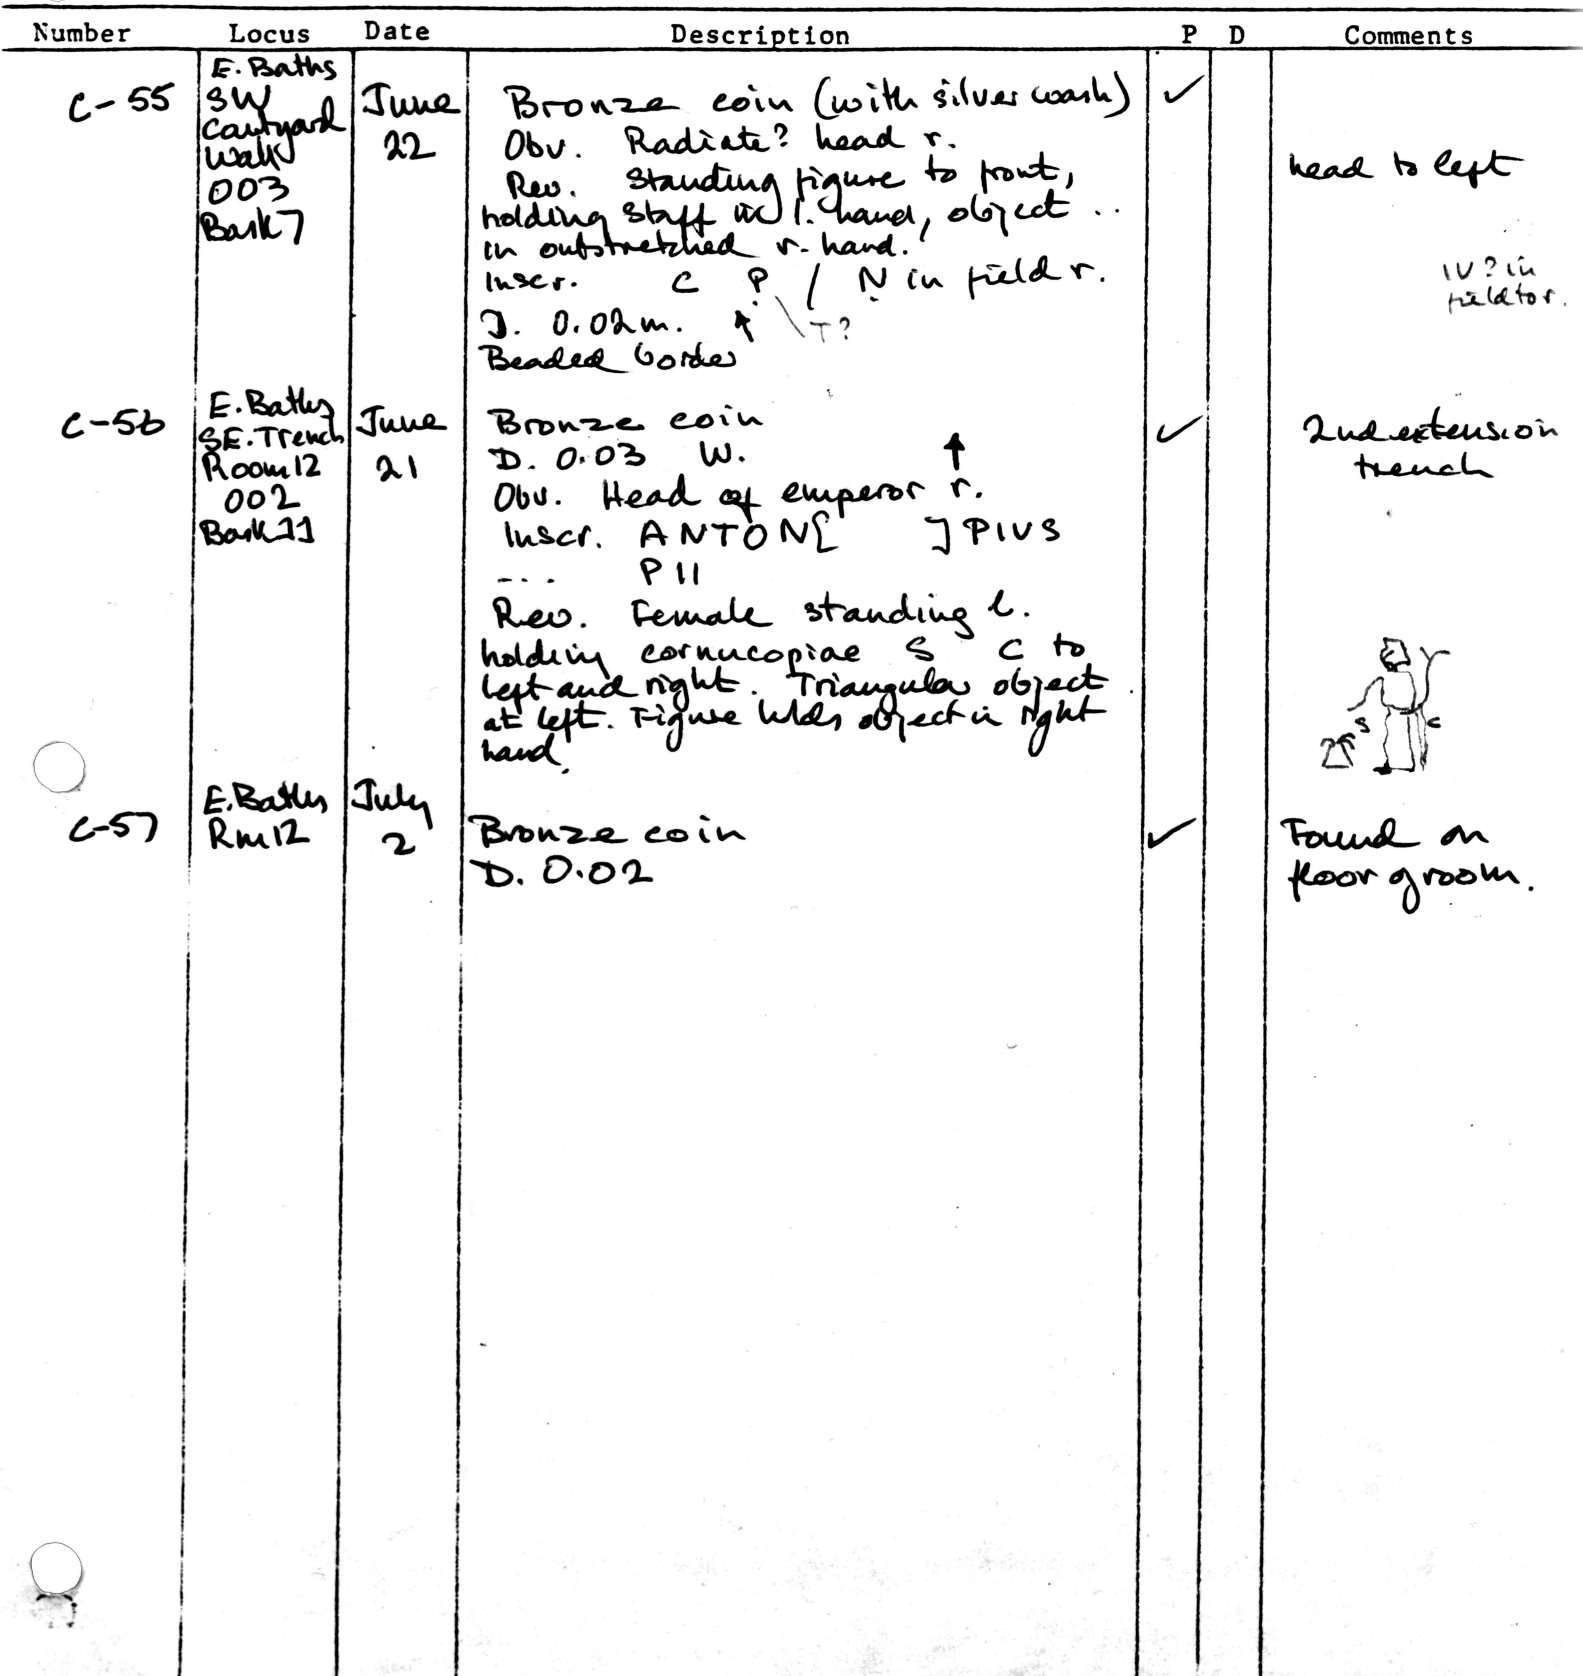 Number Locus Date Description P D Comments
C-55
E. Baths
SW
Courtyard
Walk
003
Bask 7
June
22
Bronze coin (with silver wash) ✓
Obv. Radiate? head r.
Rev. Standing figure to front,
holding staff in l. hand, object ..
in outstretched r. hand.
Inscr. C P / N in field r.
D. 0.02m. ↑ \ T?
Beaded border
head to left
IV? in
field to r.
C-56
E. Baths
SE. Trench
Room 12
002
Bask 11
June
21
Bronze coin ✓
D. 0.03 W. ↑
Obv. Head of emperor r.
Inscr. ANTON[ ] PIVS
... P II
Rev. Female standing l.
holding cornucopiae S C to
left and right. Triangular object
at left. Figure holds object in right
hand.
2nd extension
trench
S C
C-57
E. Baths
Rm 12
July
2
Bronze coin ✓
D. 0.02
Found on
floor of room.